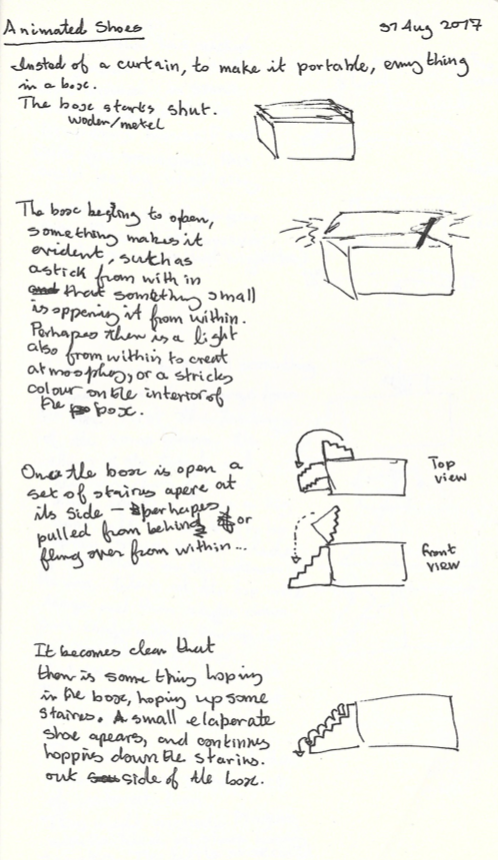 Animated Shoes
31 Aug 2017
Insted of a curtain, to make it portable, emything
in a box.
The box starts shut.
woden/metel
The box begting to open,
something makes it
evident, sutch as
a stick from with in
and that something small
is oppening it from within.
Perhapes then is a light
also from within to creat
atmosphoy, or a stricks
colour on the interior of
the po box.
Once the box is open a
set of staires apere at
its side – perhapes
pulled from behind or
fling over from within...
Top
view
front
view
It becomes clear that
then is some thing hoping
in the box, hoping up some
staires. A small elaperate
shoe apears, and continus
hopping down the starins.
out side of the box.